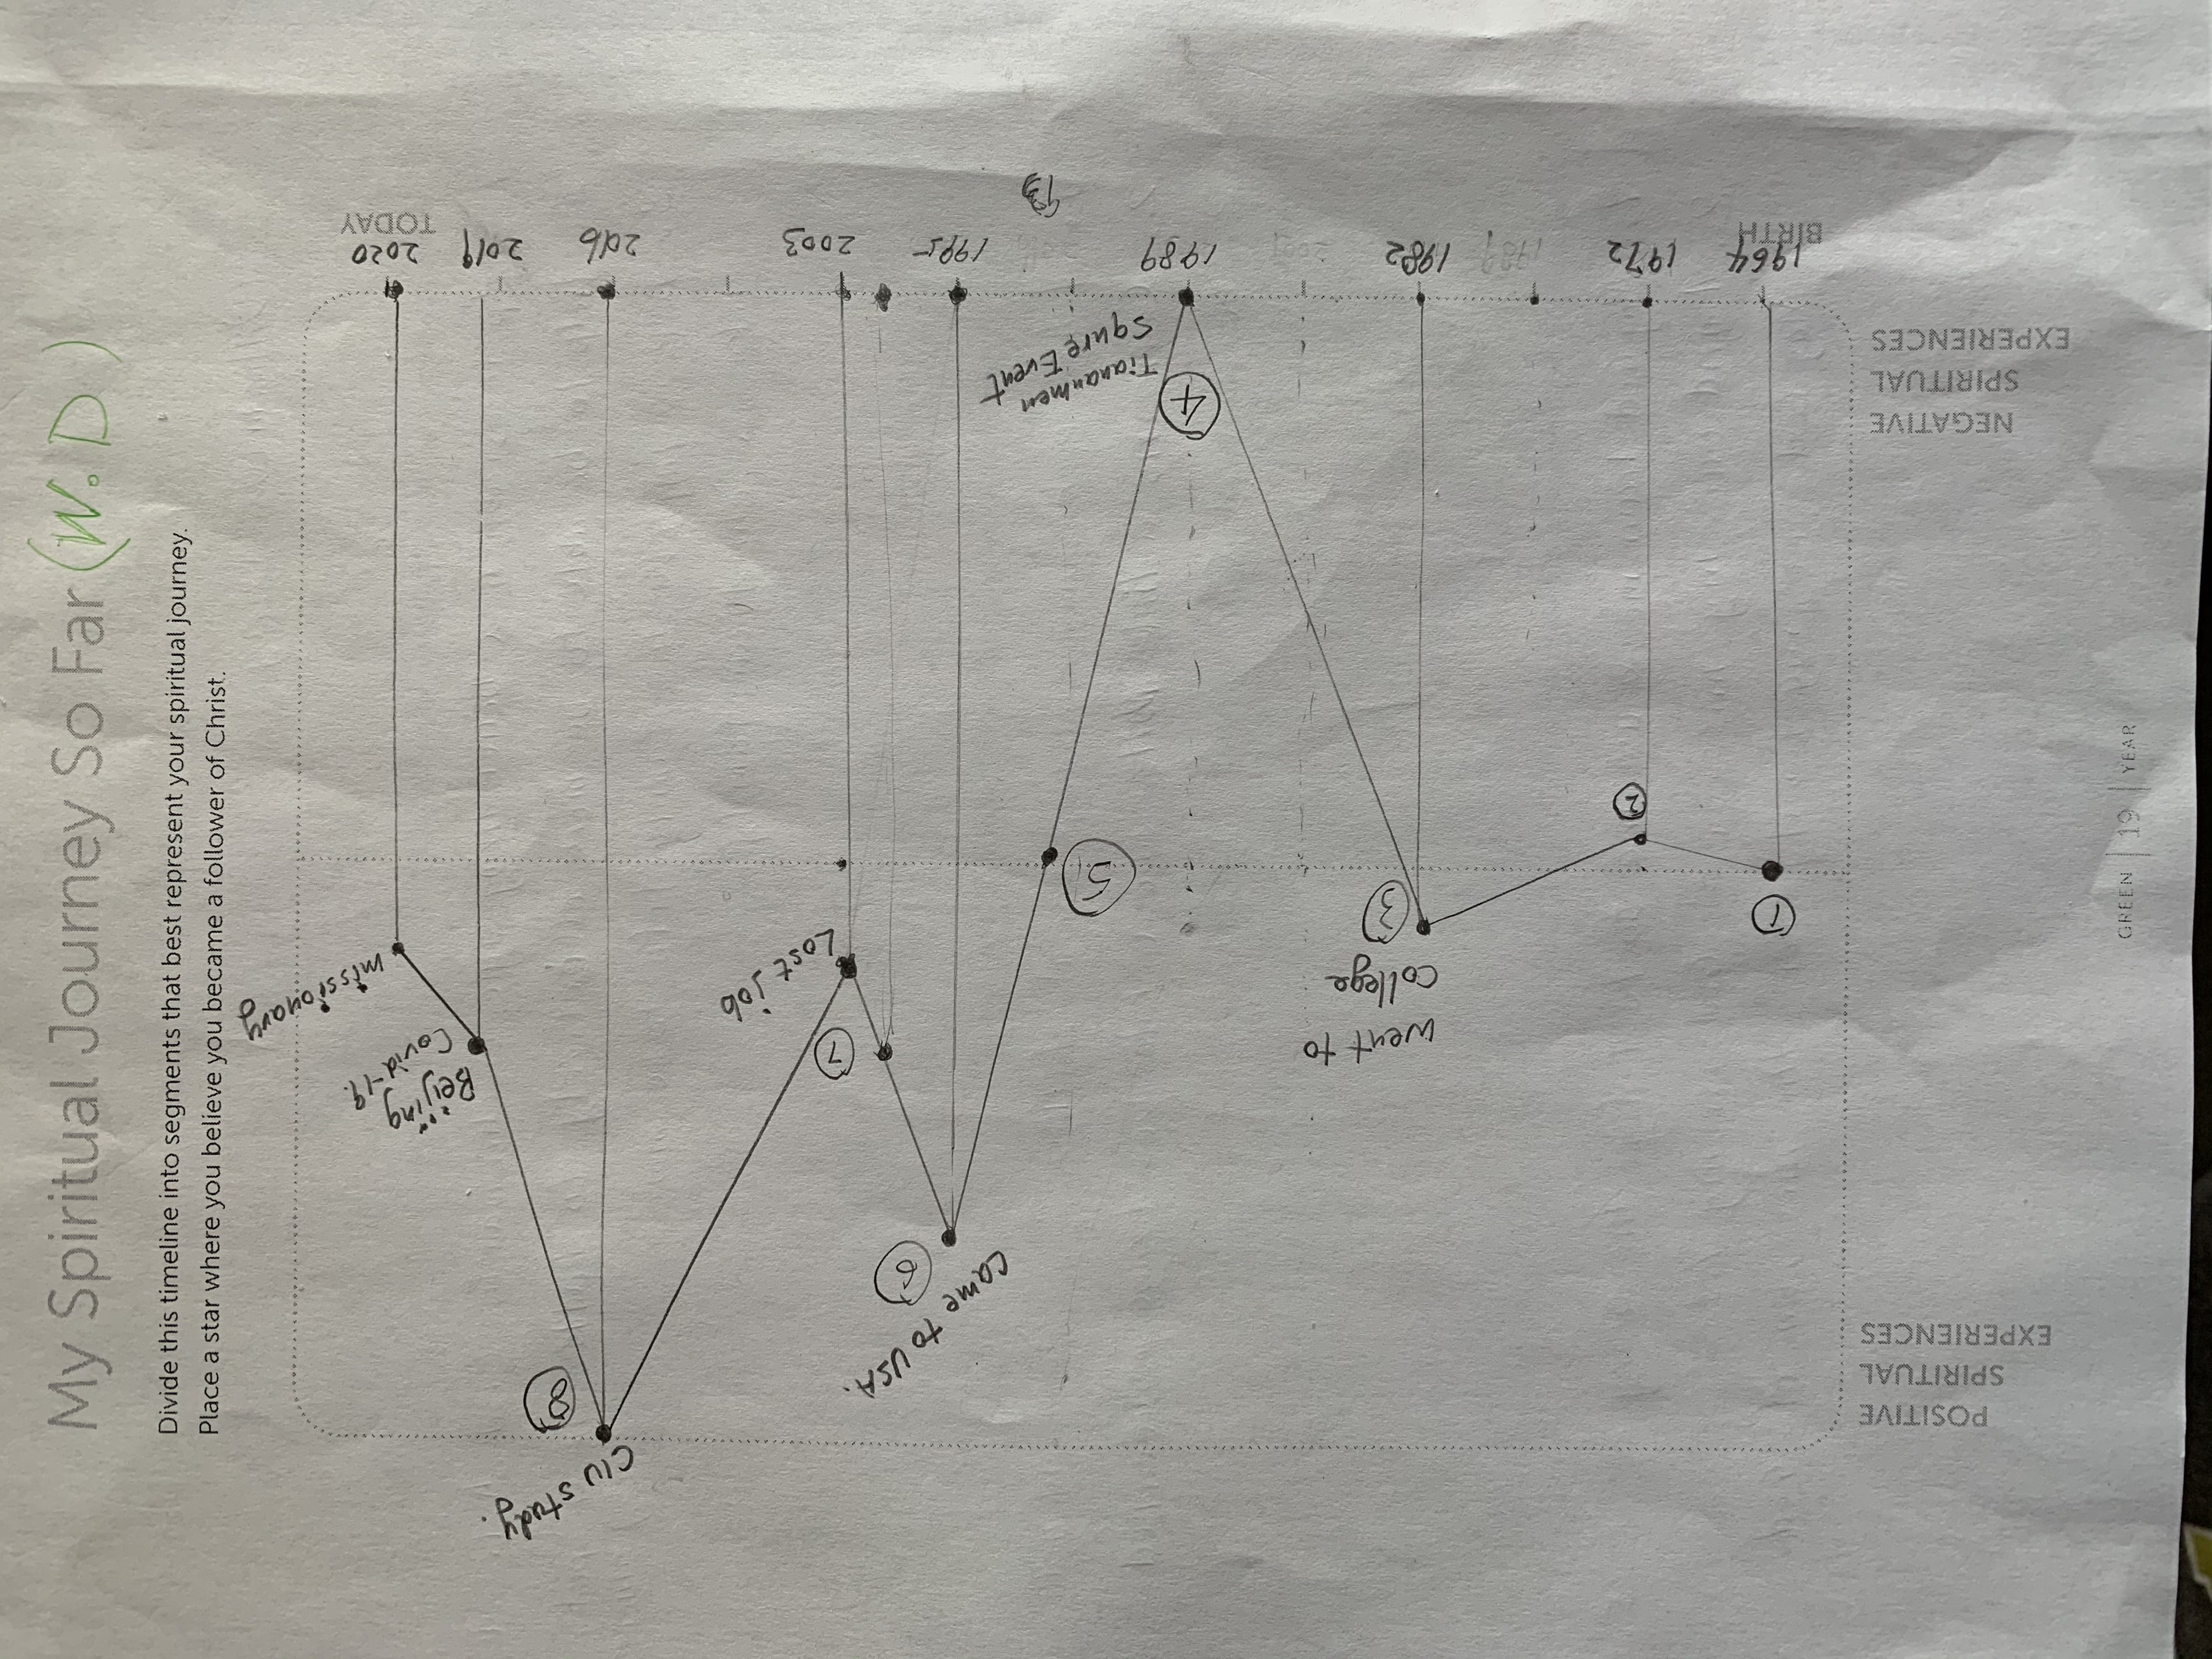 My Spiritual Journey So Far (W. D)
Divide this timeline into segments that best represent your spiritual journey.
Place a star where you believe you became a follower of Christ.
POSITIVE
SPIRITUAL
EXPERIENCES
NEGATIVE
SPIRITUAL
EXPERIENCES
1
2
went to
college
3
4
Tiananmen
Squre Event
5
came to USA.
6
7
Lost job
CIU study.
8
Beijing
Covid-19.
missionary
1964
1972
1982
1989
93
1995
2003
2016
2019
2020
BIRTH
TODAY
GREEN | 19 | YEAR